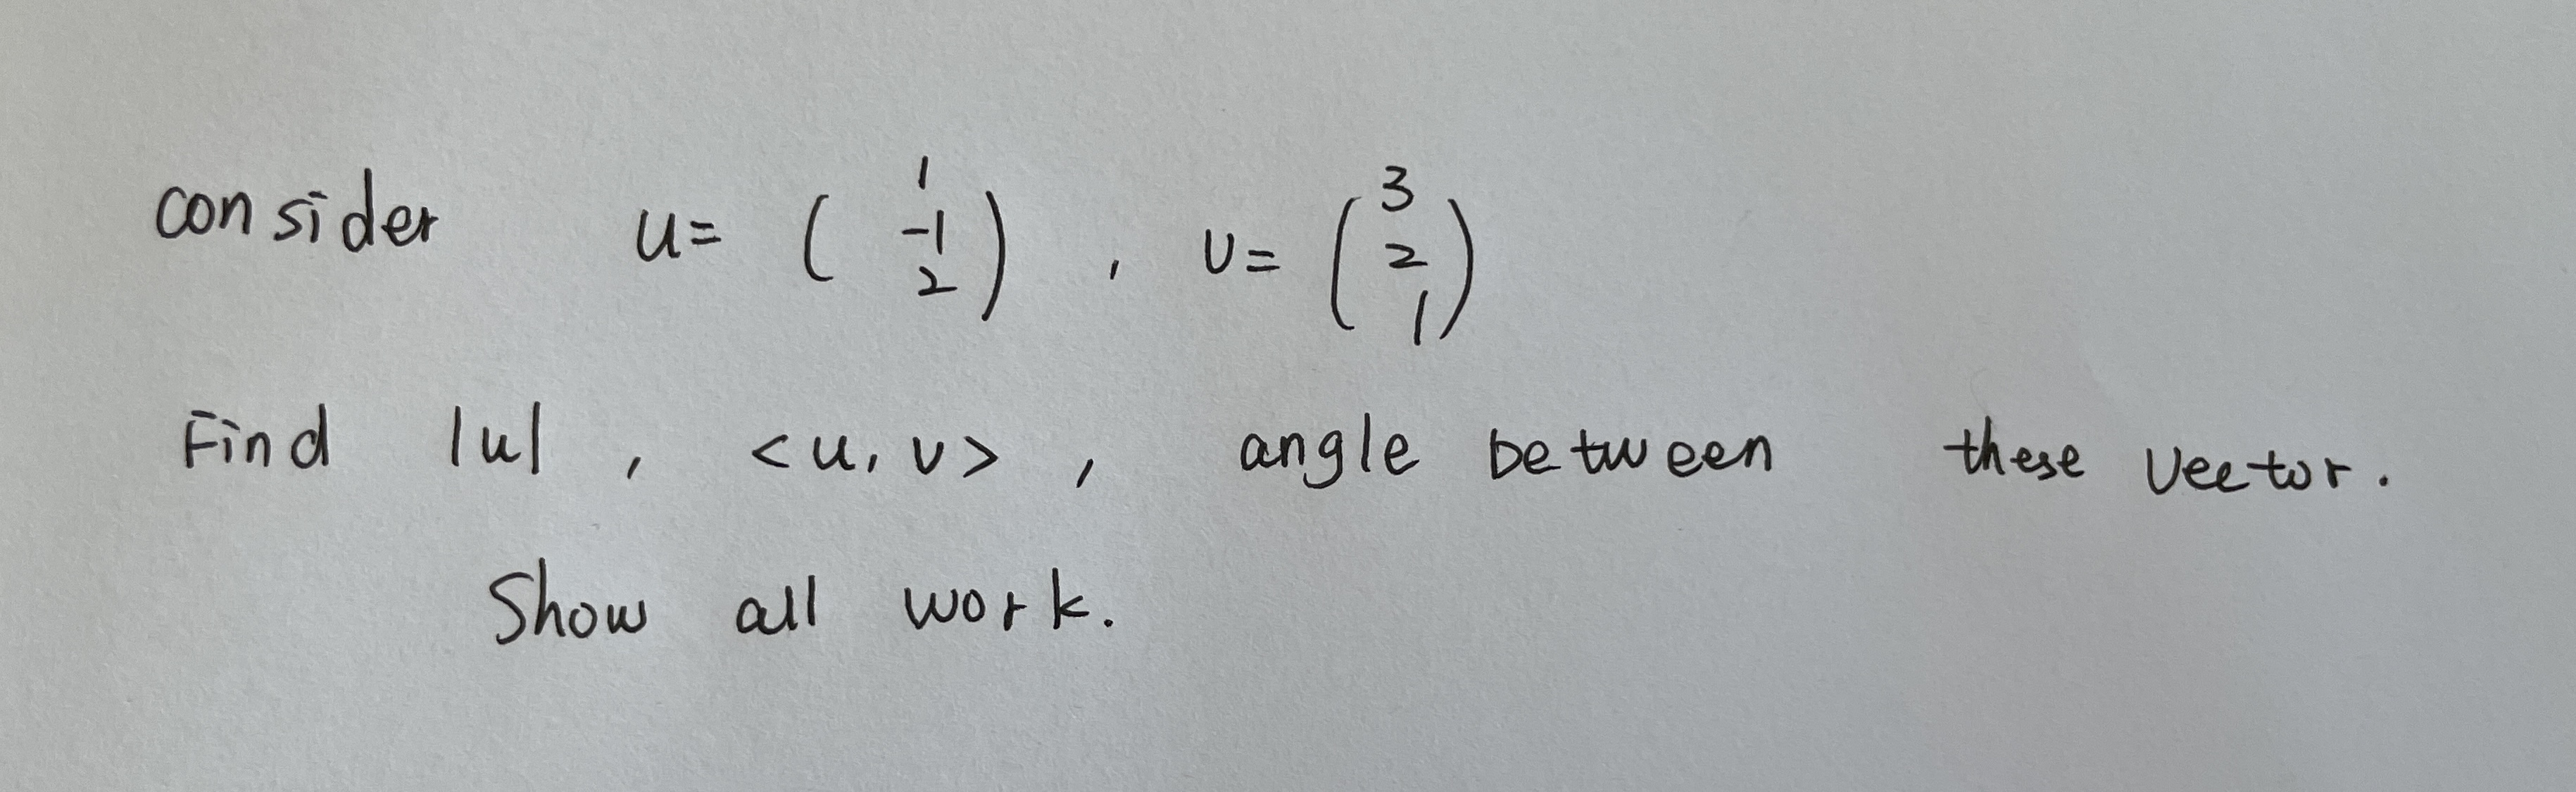 consider u= ( 1 -1 2 ) , v= ( 3 2 1 )
Find |u| , <u, v> , angle between these vector.
Show all work.